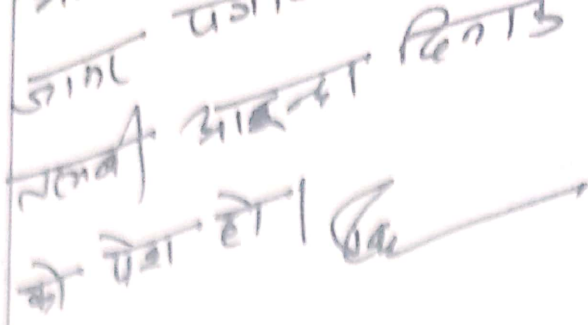 जाना
तलबी आइन्दा दिनांक
को पेश हो।